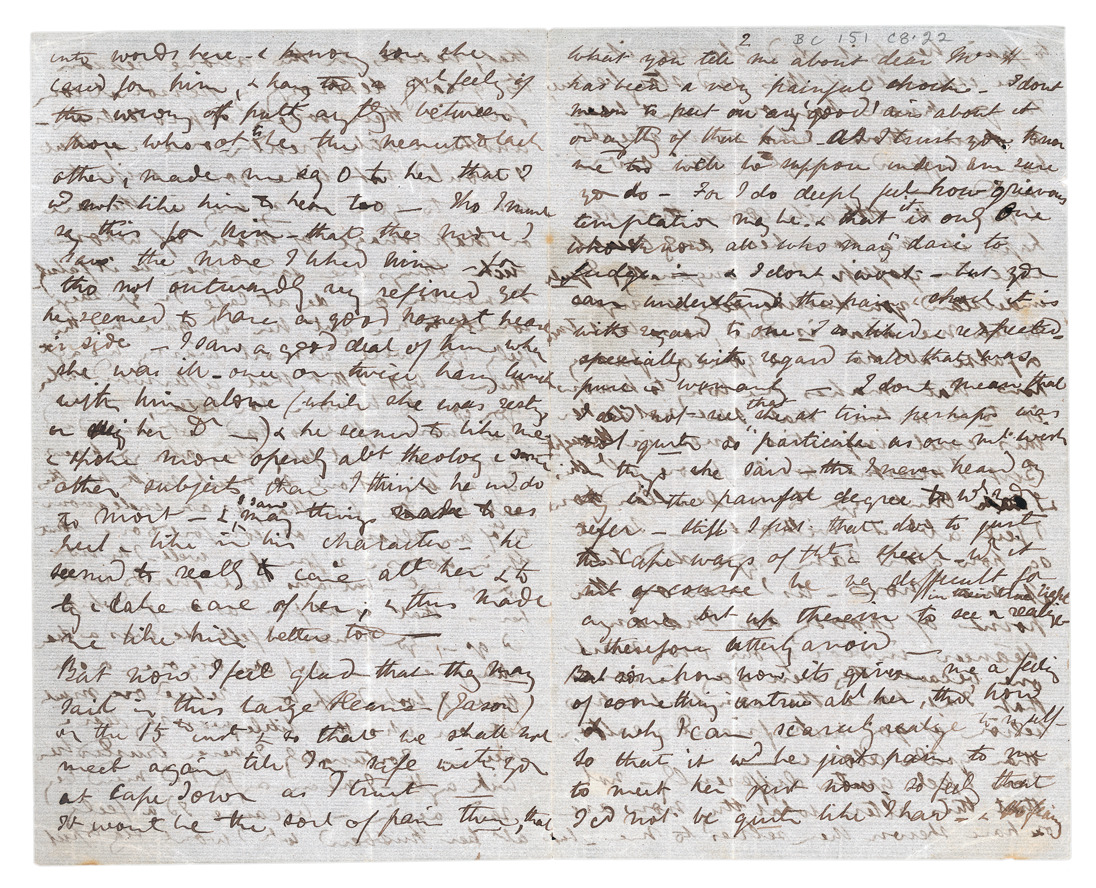 into words here - & knowing how she
cared for him, & having a gt feeling of
the wrong of putting anything between
those who ought to be the nearest to each
other, made me say O to her that I
wd not like him to hear too - Tho I must
say this for him - that the more I
saw the more I liked him - for
tho not outwardly very refined yet
he seemed to have a good honest heart
inside - I saw a good deal of him when
she was ill - once or twice having lunch
with him alone (while she was resting
or her Dr -) & he seemed to like me
& spoke more openly abt theology & some
other subjects than I think he wd do
to most - & I saw many things to res
pect & like in his character - he
seemed to really care abt her & to
try & take care of her, & this made
me like him better too -
But now I feel glad that they may
sail in this large steamer (Jason)
on the 15th inst so that we shall not
meet again till I'm safe with you
at Cape Town as I trust -
It wont be the sort of pain then, that
2 BC 151 C8.22
What you tell me about dear Mrs H
has been a very painful shock - I dont
mean to put on any 'good' air about it
or anything of that kind - As I trust you know
me too well to suppose indeed am sure
you do - For I do deeply feel how grievous
temptation may be & that it is only One
who knows all who may dare to
judge - & I dont want - but you
can understand the pain & shock it is
with regard to one I so liked & respected -
specially with regard to all that was
pure in woman - I dont mean that
I did not see that she at times perhaps was
not quite so particular as one mt wish
in things she said - tho I never heard any
in the painful degree to wh you
refer - still I put that down to just
the Cape ways of thought & speech wh it
must of course be very difficult for
anyone but up therein to see & realize
& therefore utterly avoid -
But somehow now its given me a feeling
of something untrue abt her, tho how
& why I can scarcely realize to myself -
so that it wd be just pain to me
to meet her just now & so feel that
I cd not be quite like I had -